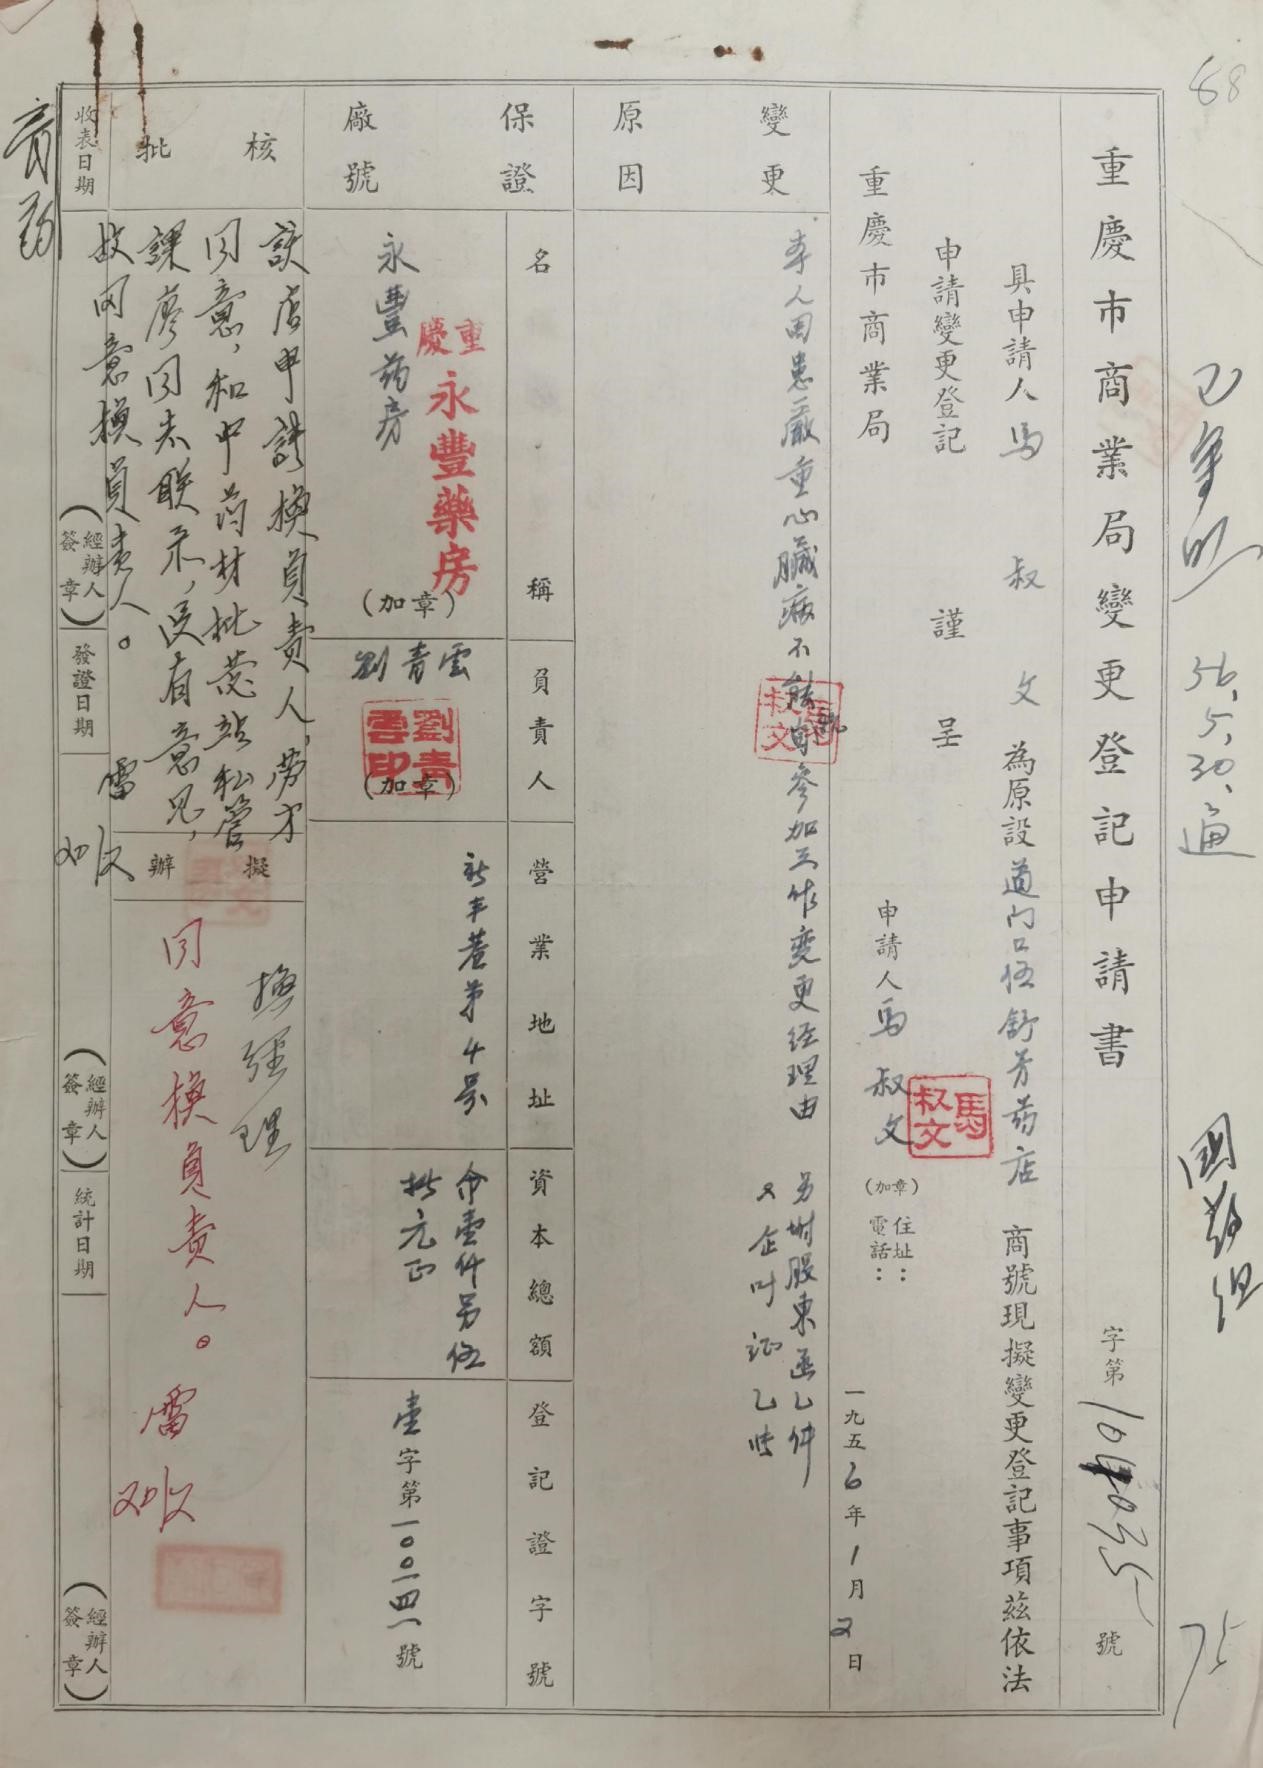 68
國药组
75
重慶市商業局變更登記申請書
字第
號
具申請人馬叔文為原設道门口伍舒芳药店商號現擬變更登記事項茲依法
申請變更登記
謹呈
重慶市商業局
申請人馬叔文
馬叔文
(加章)
住址：
電話：
一九五6年1月2日
變更
原因
本人因患嚴重心臟病不能
參加工作変更经理由
另附股東函乙件
馬叔文
保證
廠號
名稱
負責人
營業地址
資本總額
登記證字號
永豐药房
重慶
永豐藥房
(加章)
劉青雲
劉青雲印
(加章)
新丰巷第4号
壹仟另伍
拾元正
壹字第一00一四一號
核
批
該店申請換負責人,劳方
同意,和中药材批发站私管
課廖同志联系,没有意见,
故同意換負责人。
擬
辦
換经理
同意換負责人。
收表日期
(經辦人簽章)
發證日期
(經辦人簽章)
統計日期
(經辦人簽章)